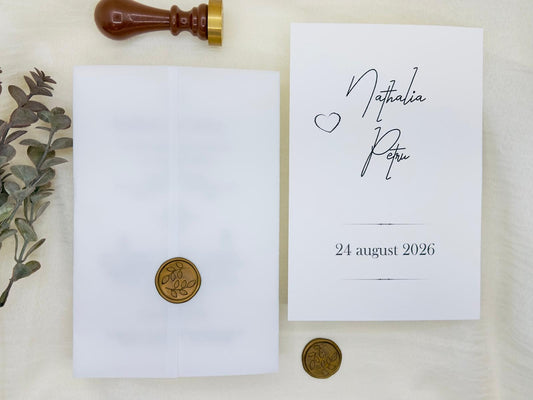 Nathalia
Petru
24 august 2026